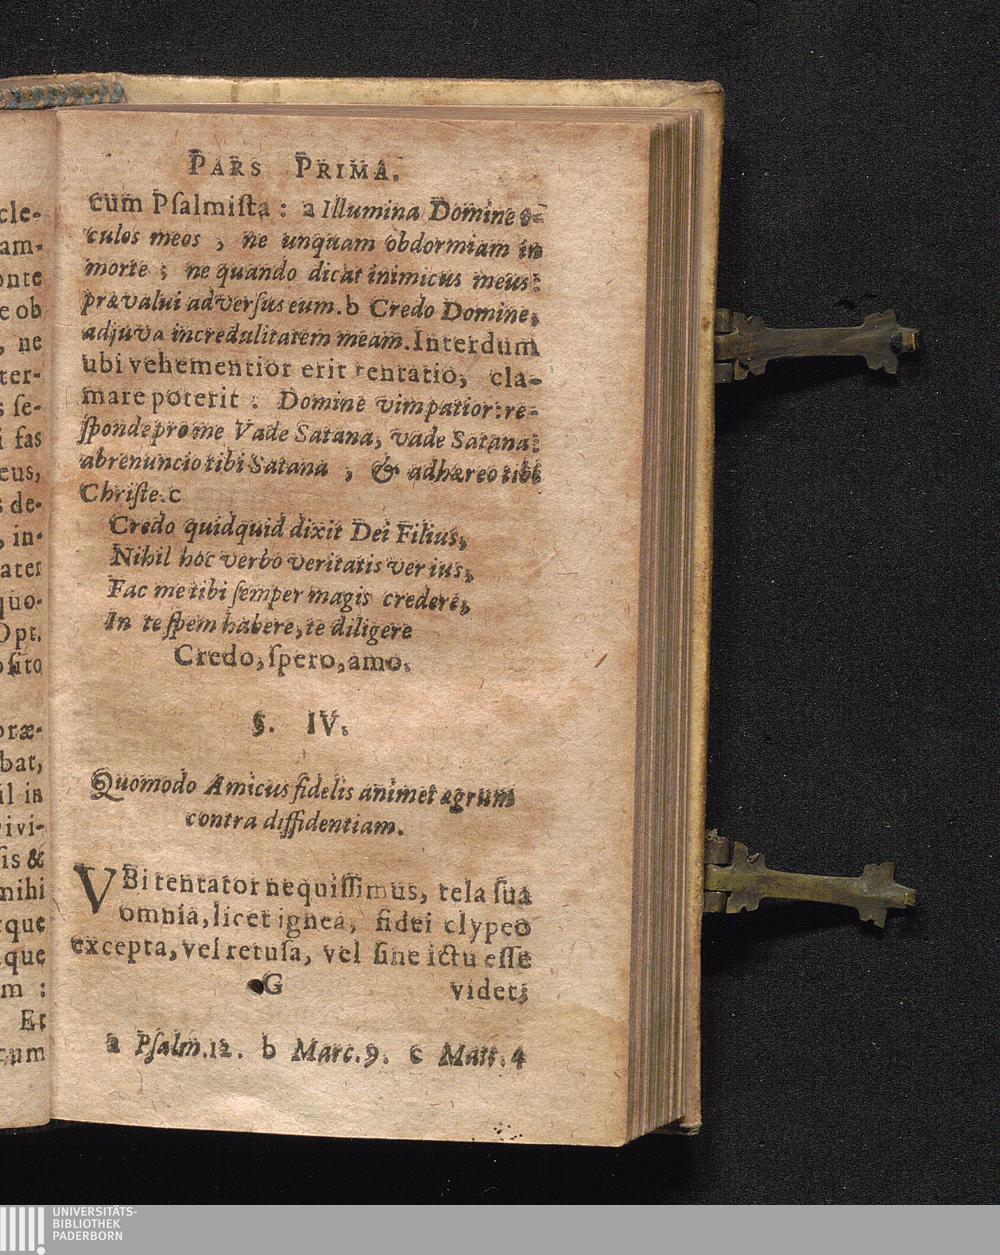 cle-
am-
onte
e ob
, ne
ter-
s ſe-
i fas
eus,
s de-
, in-
ater
quo-
Opt.
oſito
præ-
bat,
il in
ivi-
ſis &
mihi
rque
que
m :
Et
cum
PARS PRIMA.
cum Pſalmiſta : a Illumina Domine o-
culos meos , ne unquam obdormiam in
morte ; ne quando dicat inimicus meus:
prævalui adverſus eum. b Credo Domine,
adjuva incredulitatem meam. Interdum
ubi vehementior erit tentatio, cla-
mare poterit : Domine vim patior: re-
ſponde pro me Vade Satana, vade Satana:
abrenuncio tibi Satana , & adhæreo tibi
Chriſte. c
Credo quidquid dixit Dei Filius,
Nihil hoc verbo veritatis verius,
Fac me tibi ſemper magis credere,
In te ſpem habere, te diligere
Credo, ſpero, amo.
§. IV.
Quomodo Amicus fidelis animet ægrum
contra diffidentiam.
VBi tentator nequiſſimus, tela ſua
omnia, licet ignea, fidei clypeo
excepta, vel retuſa, vel ſine ictu eſſe
G videt;
a Pſalm. 12. b Marc. 9. c Matt. 4
UNIVERSITÄTS-
BIBLIOTHEK
PADERBORN